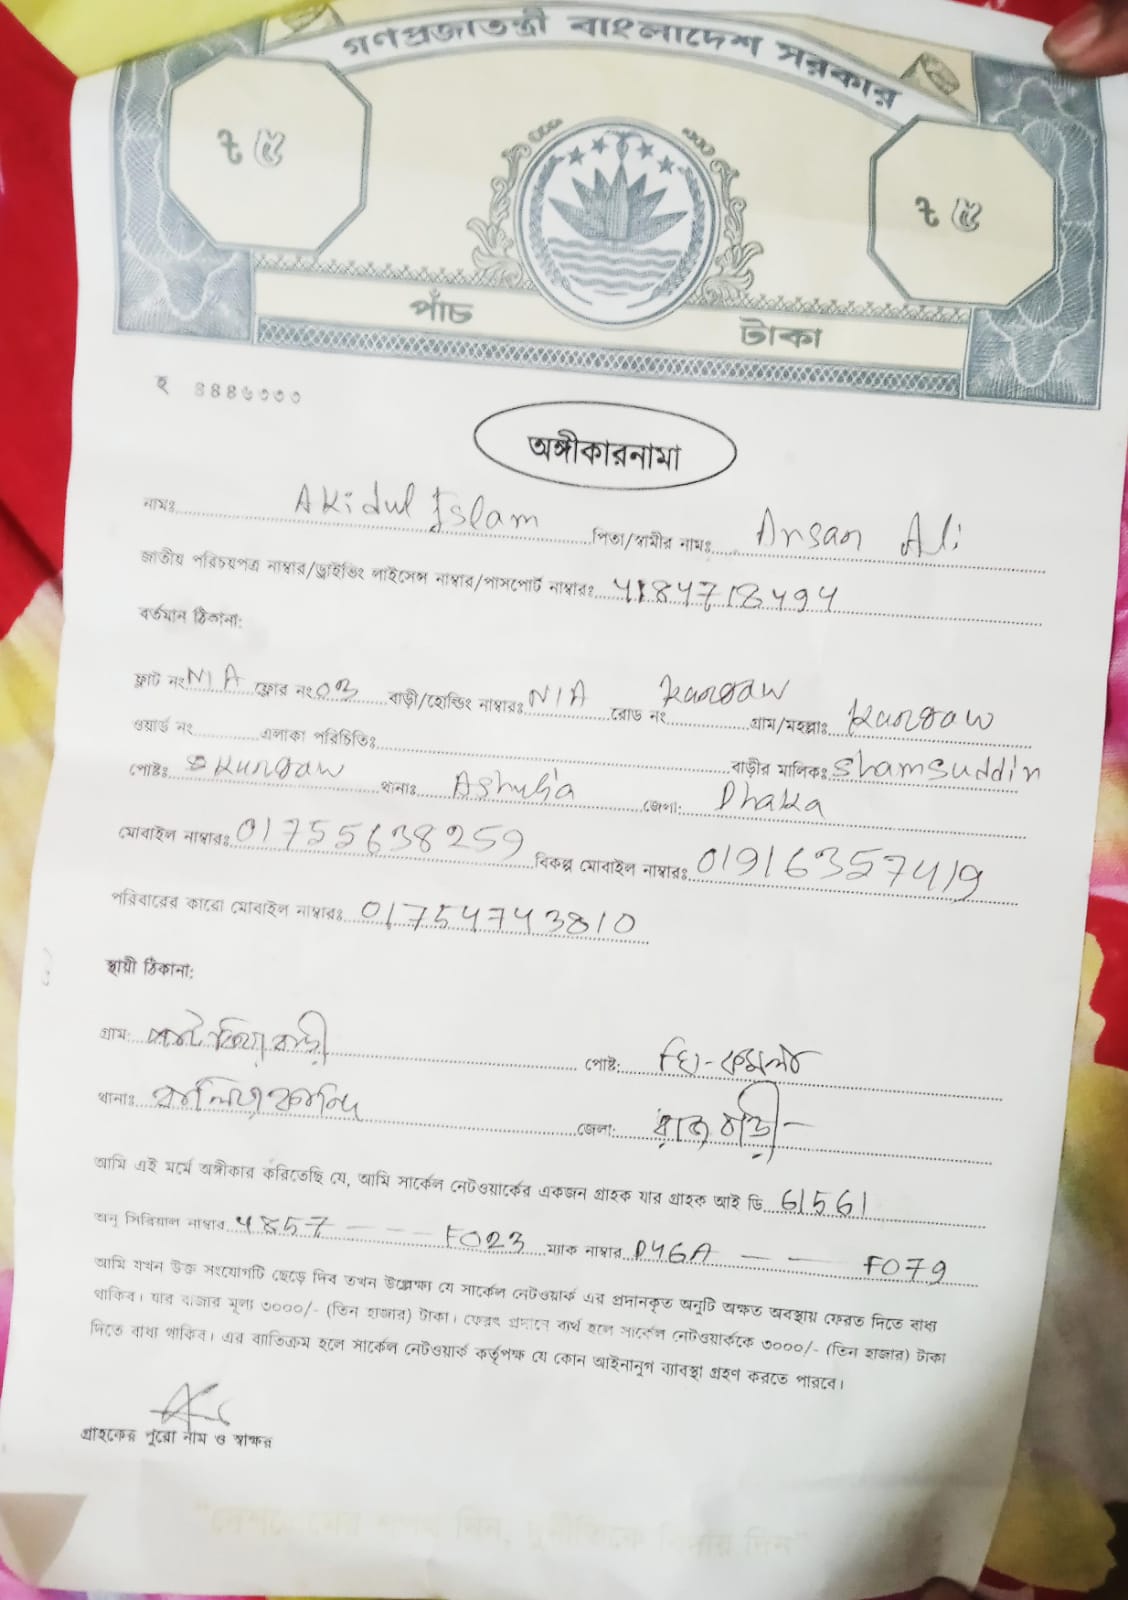 গণপ্রজাতন্ত্রী বাংলাদেশ সরকার
৳ ৫ ৳ ৫
পাঁচ টাকা
হ ৪৪৪৬৩৩৩
অঙ্গীকারনামা
নামঃ Akidul Islam পিতা/স্বামীর নামঃ Ansan Ali
জাতীয় পরিচয়পত্র নাম্বার/ড্রাইভিং লাইসেন্স নাম্বার/পাসপোর্ট নাম্বারঃ 4184718494
বর্তমান ঠিকানা:
ফ্লাট নং N/A ফ্লোর নং 03 বাড়ী/হোল্ডিং নাম্বারঃ N/A রোড নং গ্রাম/মহল্লাঃ
ওয়ার্ড নং এলাকা পরিচিতিঃ বাড়ীর মালিকঃ Shamsuddin
পোষ্টঃ থানাঃ Ashulia জেলা: Dhaka
মোবাইল নাম্বারঃ 01755638259 বিকল্প মোবাইল নাম্বারঃ 01916357419
পরিবারের কারো মোবাইল নাম্বারঃ 01754743810
স্থায়ী ঠিকানা:
গ্রাম: পোষ্ট:
থানাঃ জেলা: রাজবাড়ী
আমি এই মর্মে অঙ্গীকার করিতেছি যে, আমি সার্কেল নেটওয়ার্কের একজন গ্রাহক যার গ্রাহক আই ডি 61561
অনু সিরিয়াল নাম্বার 4857 — — F023 ম্যাক নাম্বার D46A — — F079
আমি যখন উক্ত সংযোগটি ছেড়ে দিব তখন উল্লেক্ষা যে সার্কেল নেটওয়ার্ক এর প্রদানকৃত অনুটি অক্ষত অবস্থায় ফেরত দিতে বাধ্য
থাকিব। যার বাজার মূল্য ৩০০০/- (তিন হাজার) টাকা। ফেরৎ প্রদানে ব্যর্থ হলে সার্কেল নেটওয়ার্ককে ৩০০০/- (তিন হাজার) টাকা
দিতে বাধ্য থাকিব। এর ব্যতিক্রম হলে সার্কেল নেটওয়ার্ক কর্তৃপক্ষ যে কোন আইনানুগ ব্যাবস্থা গ্রহণ করতে পারবে।
গ্রাহকের পুরো নাম ও স্বাক্ষর